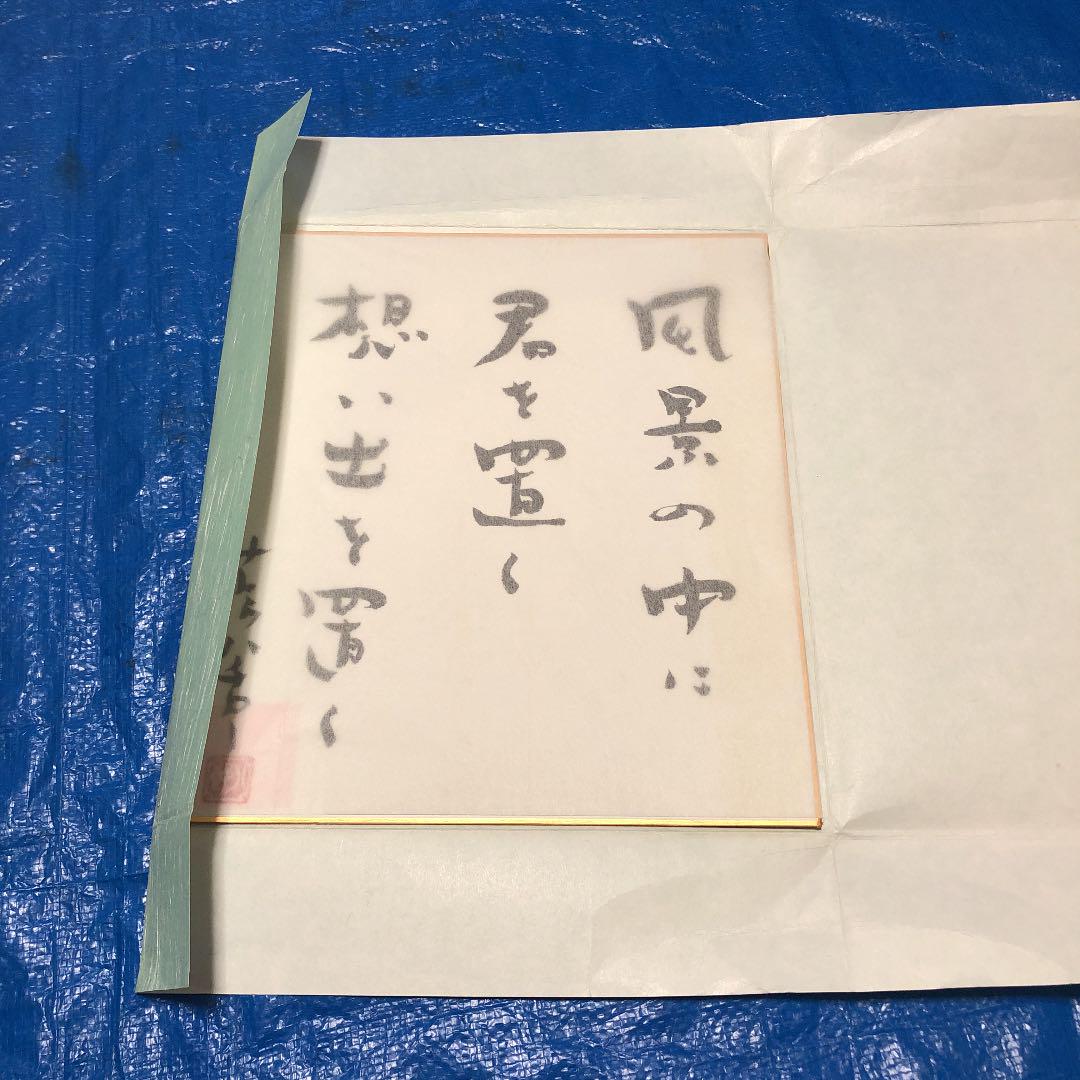 風景の中に
君を置く
想い出を置く